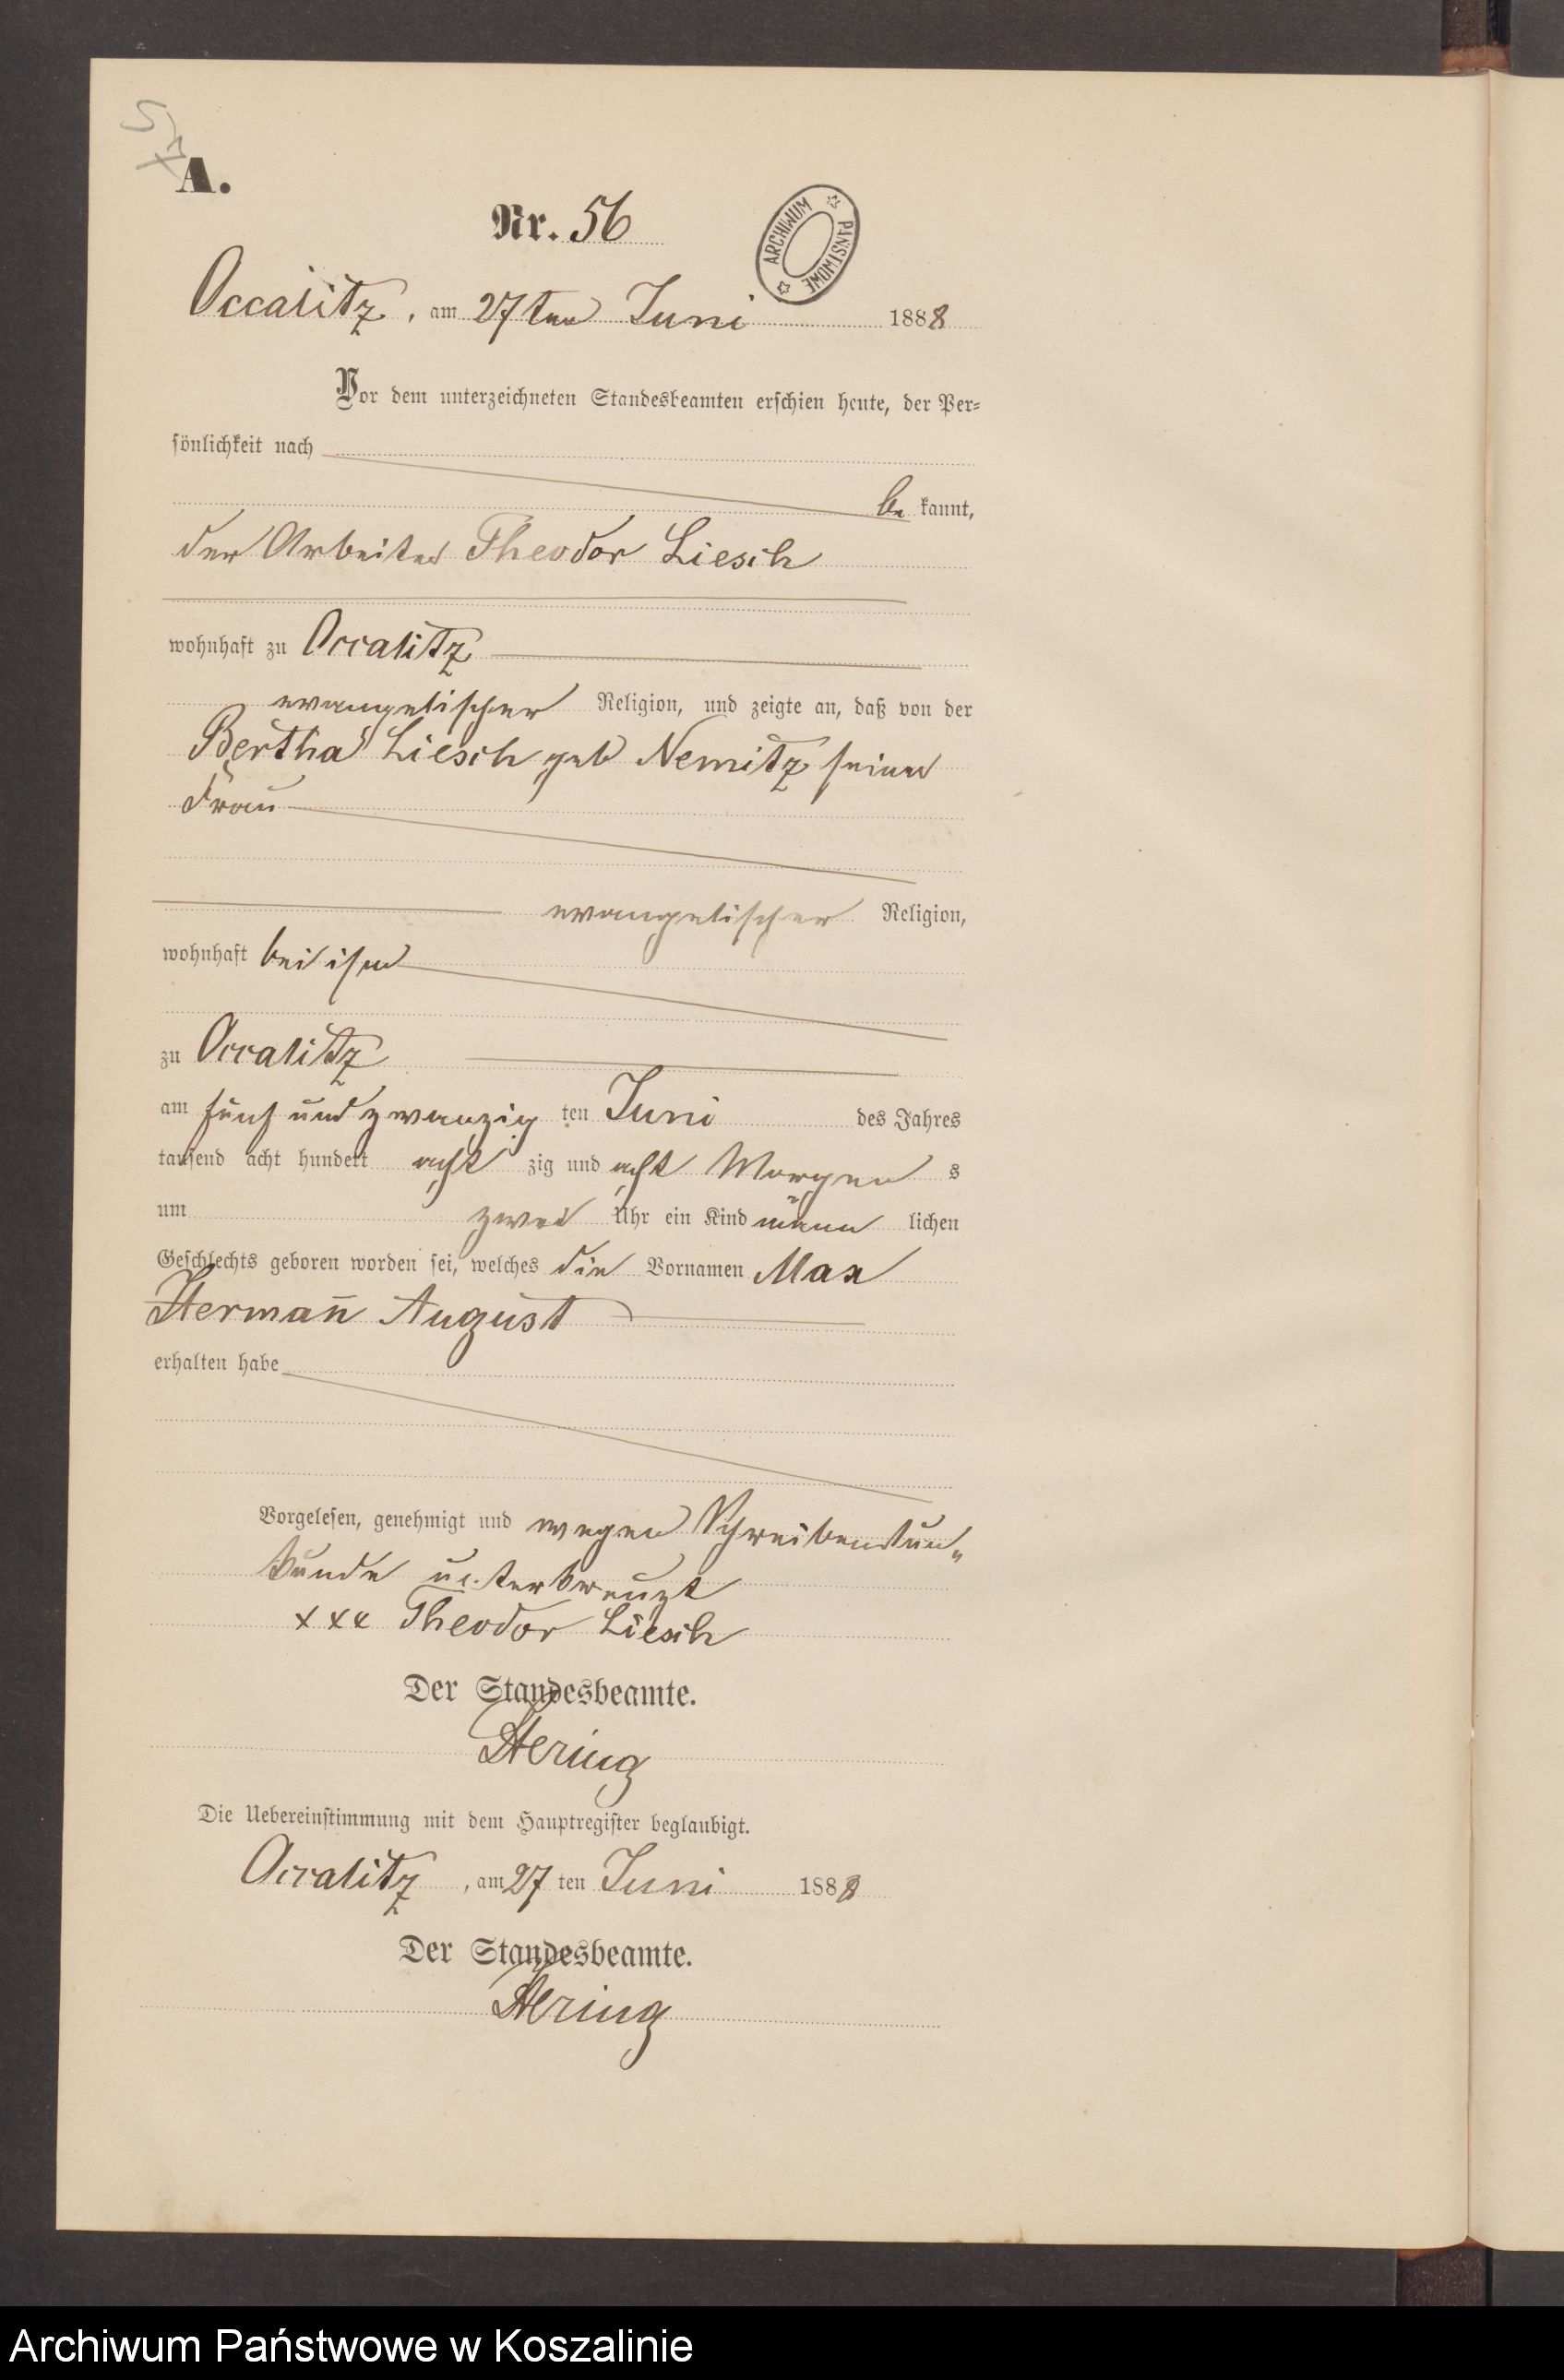 A.
Nr. 56
ARCHIWUM PAŃSTWOWE
Occalitz, am 27ten Juni 1888
Vor dem unterzeichneten Standesbeamten erschien heute, der Per-
sönlichkeit nach
be kannt,
der Arbeiter Theodor Liesch
wohnhaft zu Occalitz
evangelischer Religion, und zeigte an, daß von der
Bertha Liesch geb Nemitz seiner
Frau
evangelischer Religion,
wohnhaft bei ihm
zu Occalitz
am fünf und zwanzig ten Juni des Jahres
tausend acht hundert acht zig und acht Morgen s
um zwei Uhr ein Kind männ lichen
Geschlechts geboren worden sei, welches die Vornamen Max
Hermañ August
erhalten habe
Vorgelesen, genehmigt und wegen Schreibensun-
kunde unterkreuzt
xxx Theodor Liesch
Der Standesbeamte.
Hering
Die Uebereinstimmung mit dem Hauptregister beglaubigt.
Occalitz, am 27 ten Juni 1888
Der Standesbeamte.
Hering
Archiwum Państwowe w Koszalinie